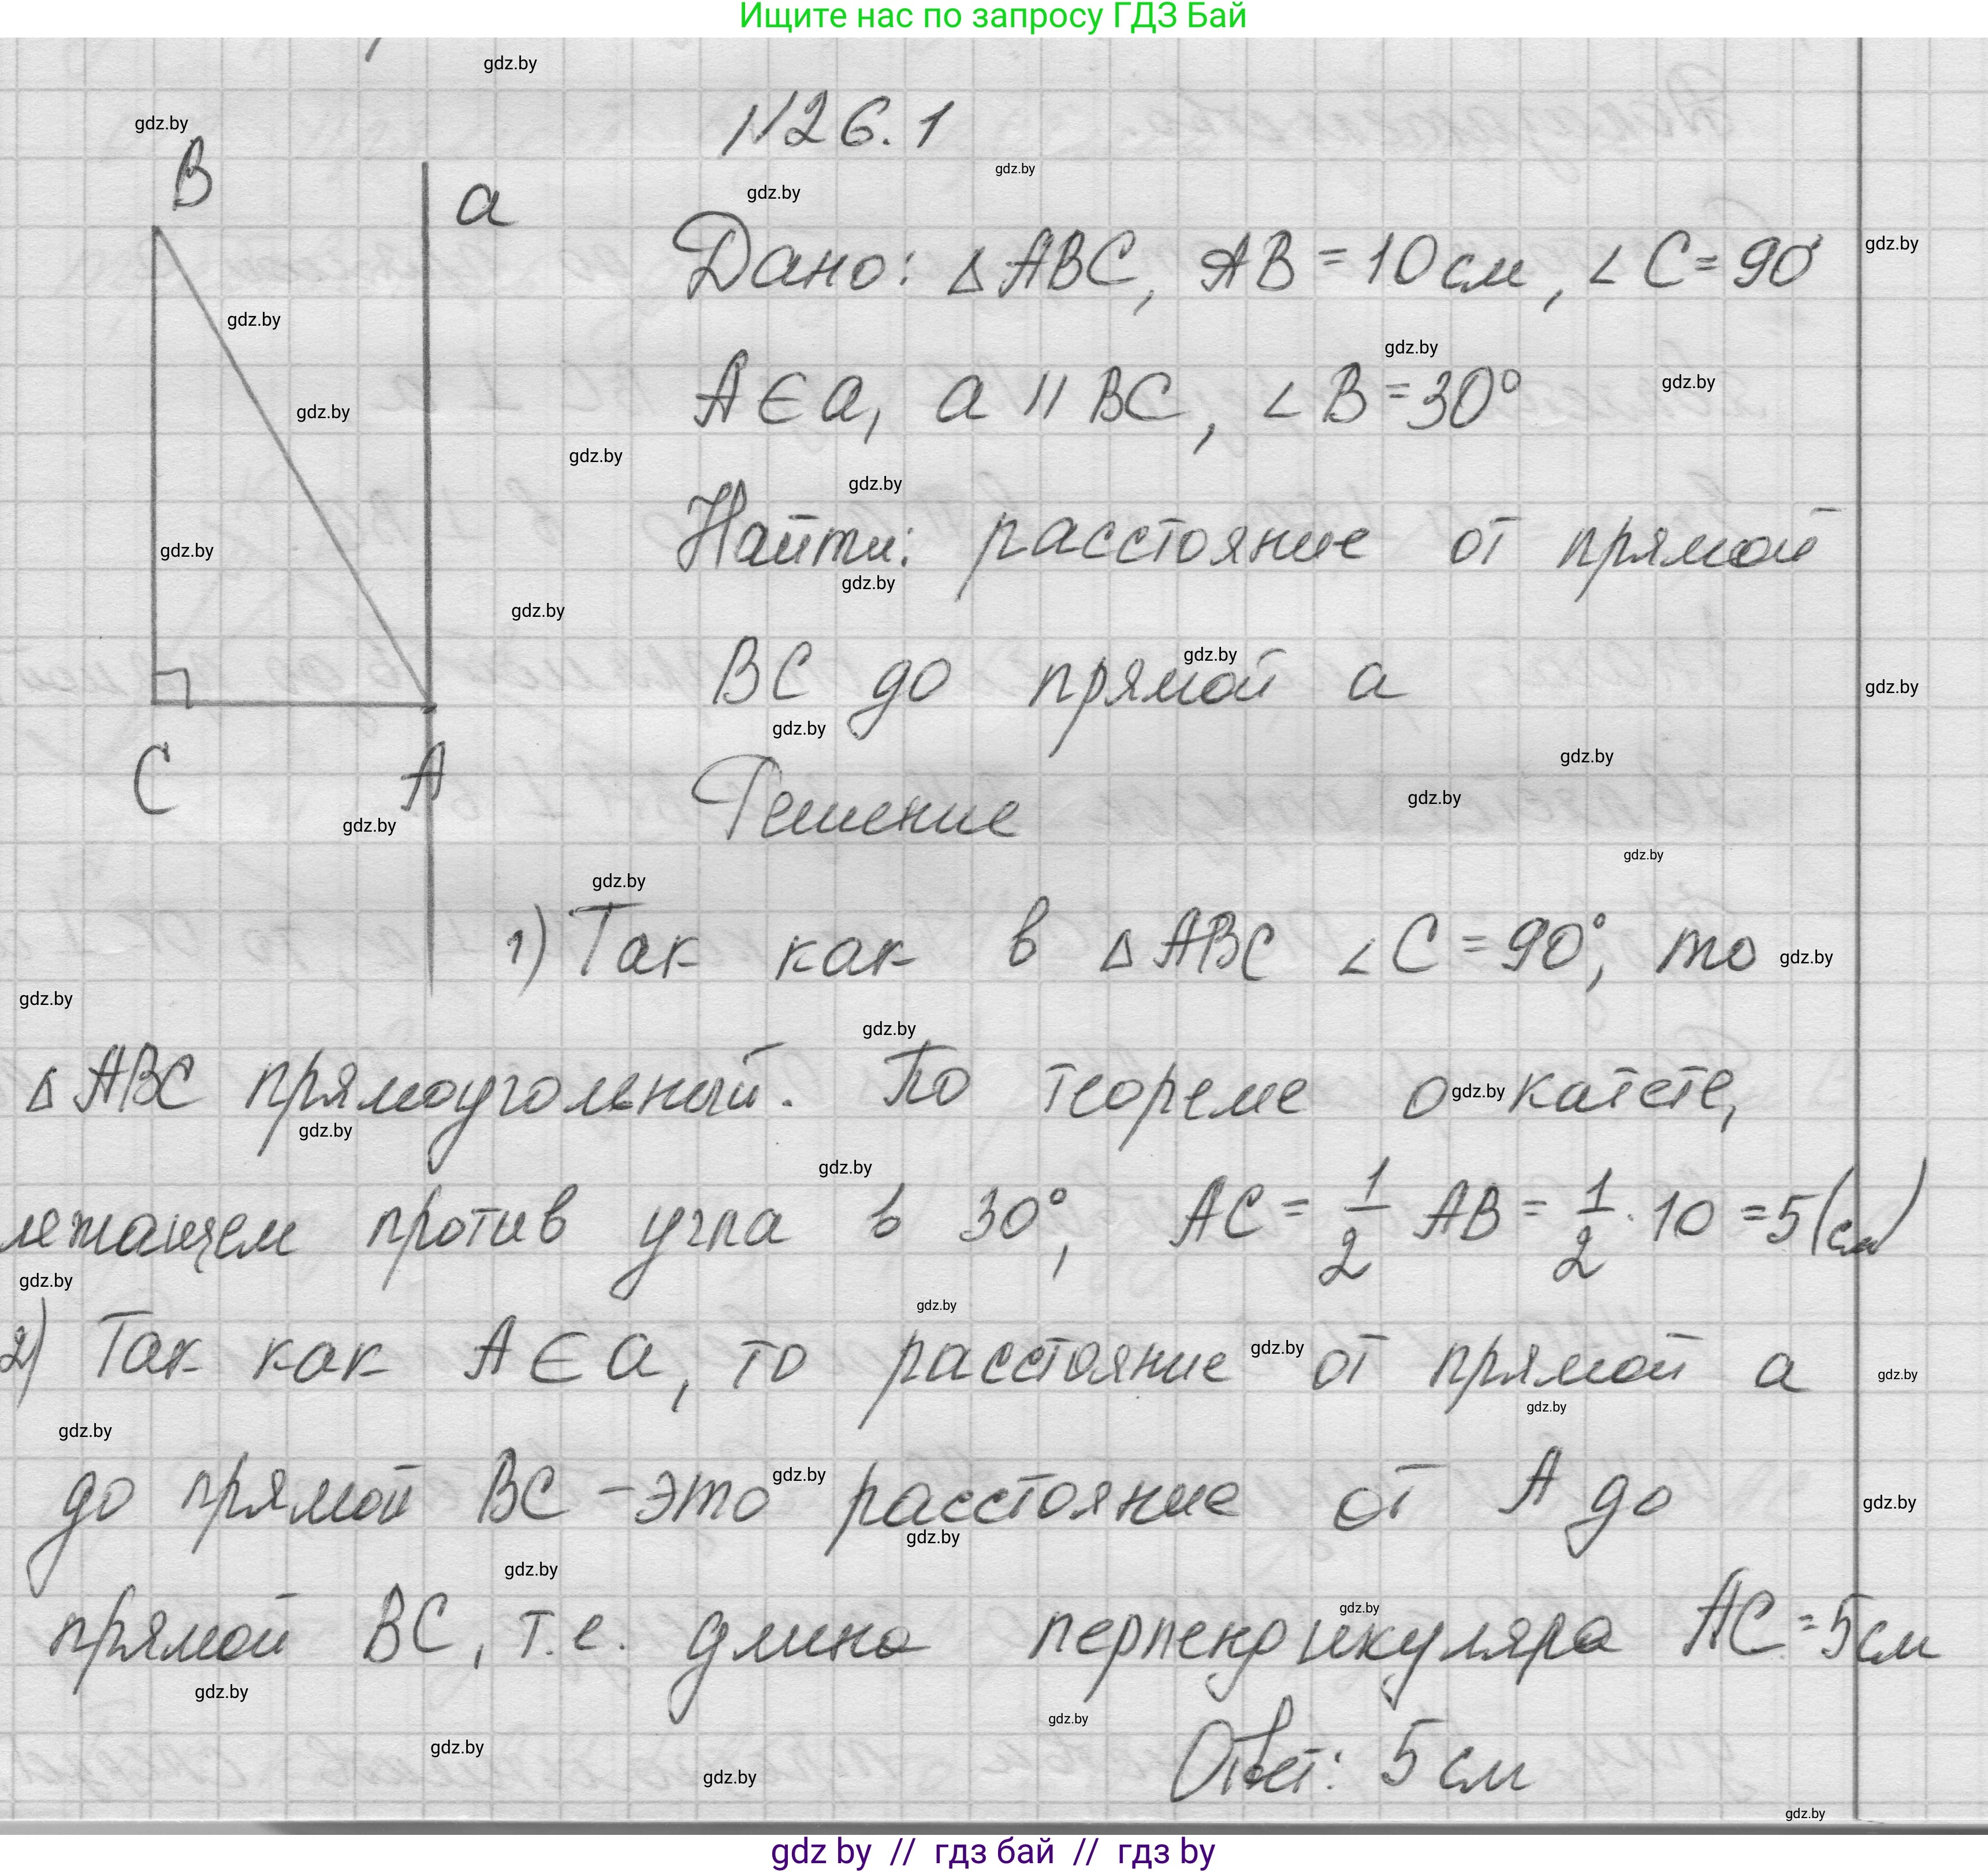 Ищите нас по запросу ГДЗ Бай
gdz.by
gdz.by
N26.1
gdz.by
gdz.by
B
a
Дано: △ABC, AB = 10 см, ∠C = 90°
gdz.by
gdz.by
gdz.by
gdz.by
A∈a, a || BC, ∠B = 30°
gdz.by
gdz.by
gdz.by
Найти: расстояние от прямой
gdz.by
gdz.by
gdz.by
BC до прямой a
gdz.by
gdz.by
gdz.by
C A
gdz.by
Решение
gdz.by
gdz.by
gdz.by
gdz.by
1) Так как в △ABC ∠C = 90°, то
gdz.by
gdz.by
gdz.by
△ABC прямоугольный. По теореме о катете,
gdz.by
gdz.by
gdz.by
лежащем против угла в 30°, AC = 1/2 AB = 1/2 · 10 = 5 (см)
gdz.by
gdz.by
2) Так как A∈a, то расстояние от прямой a
gdz.by
gdz.by
gdz.by
gdz.by
до прямой BC – это расстояние от A до
gdz.by
gdz.by
gdz.by
gdz.by
прямой BC, т.е. длина перпендикуляра AC = 5 см
gdz.by
gdz.by
gdz.by
Ответ: 5 см
gdz.by
gdz.by
gdz.by
gdz by // гдз бай // гдз by